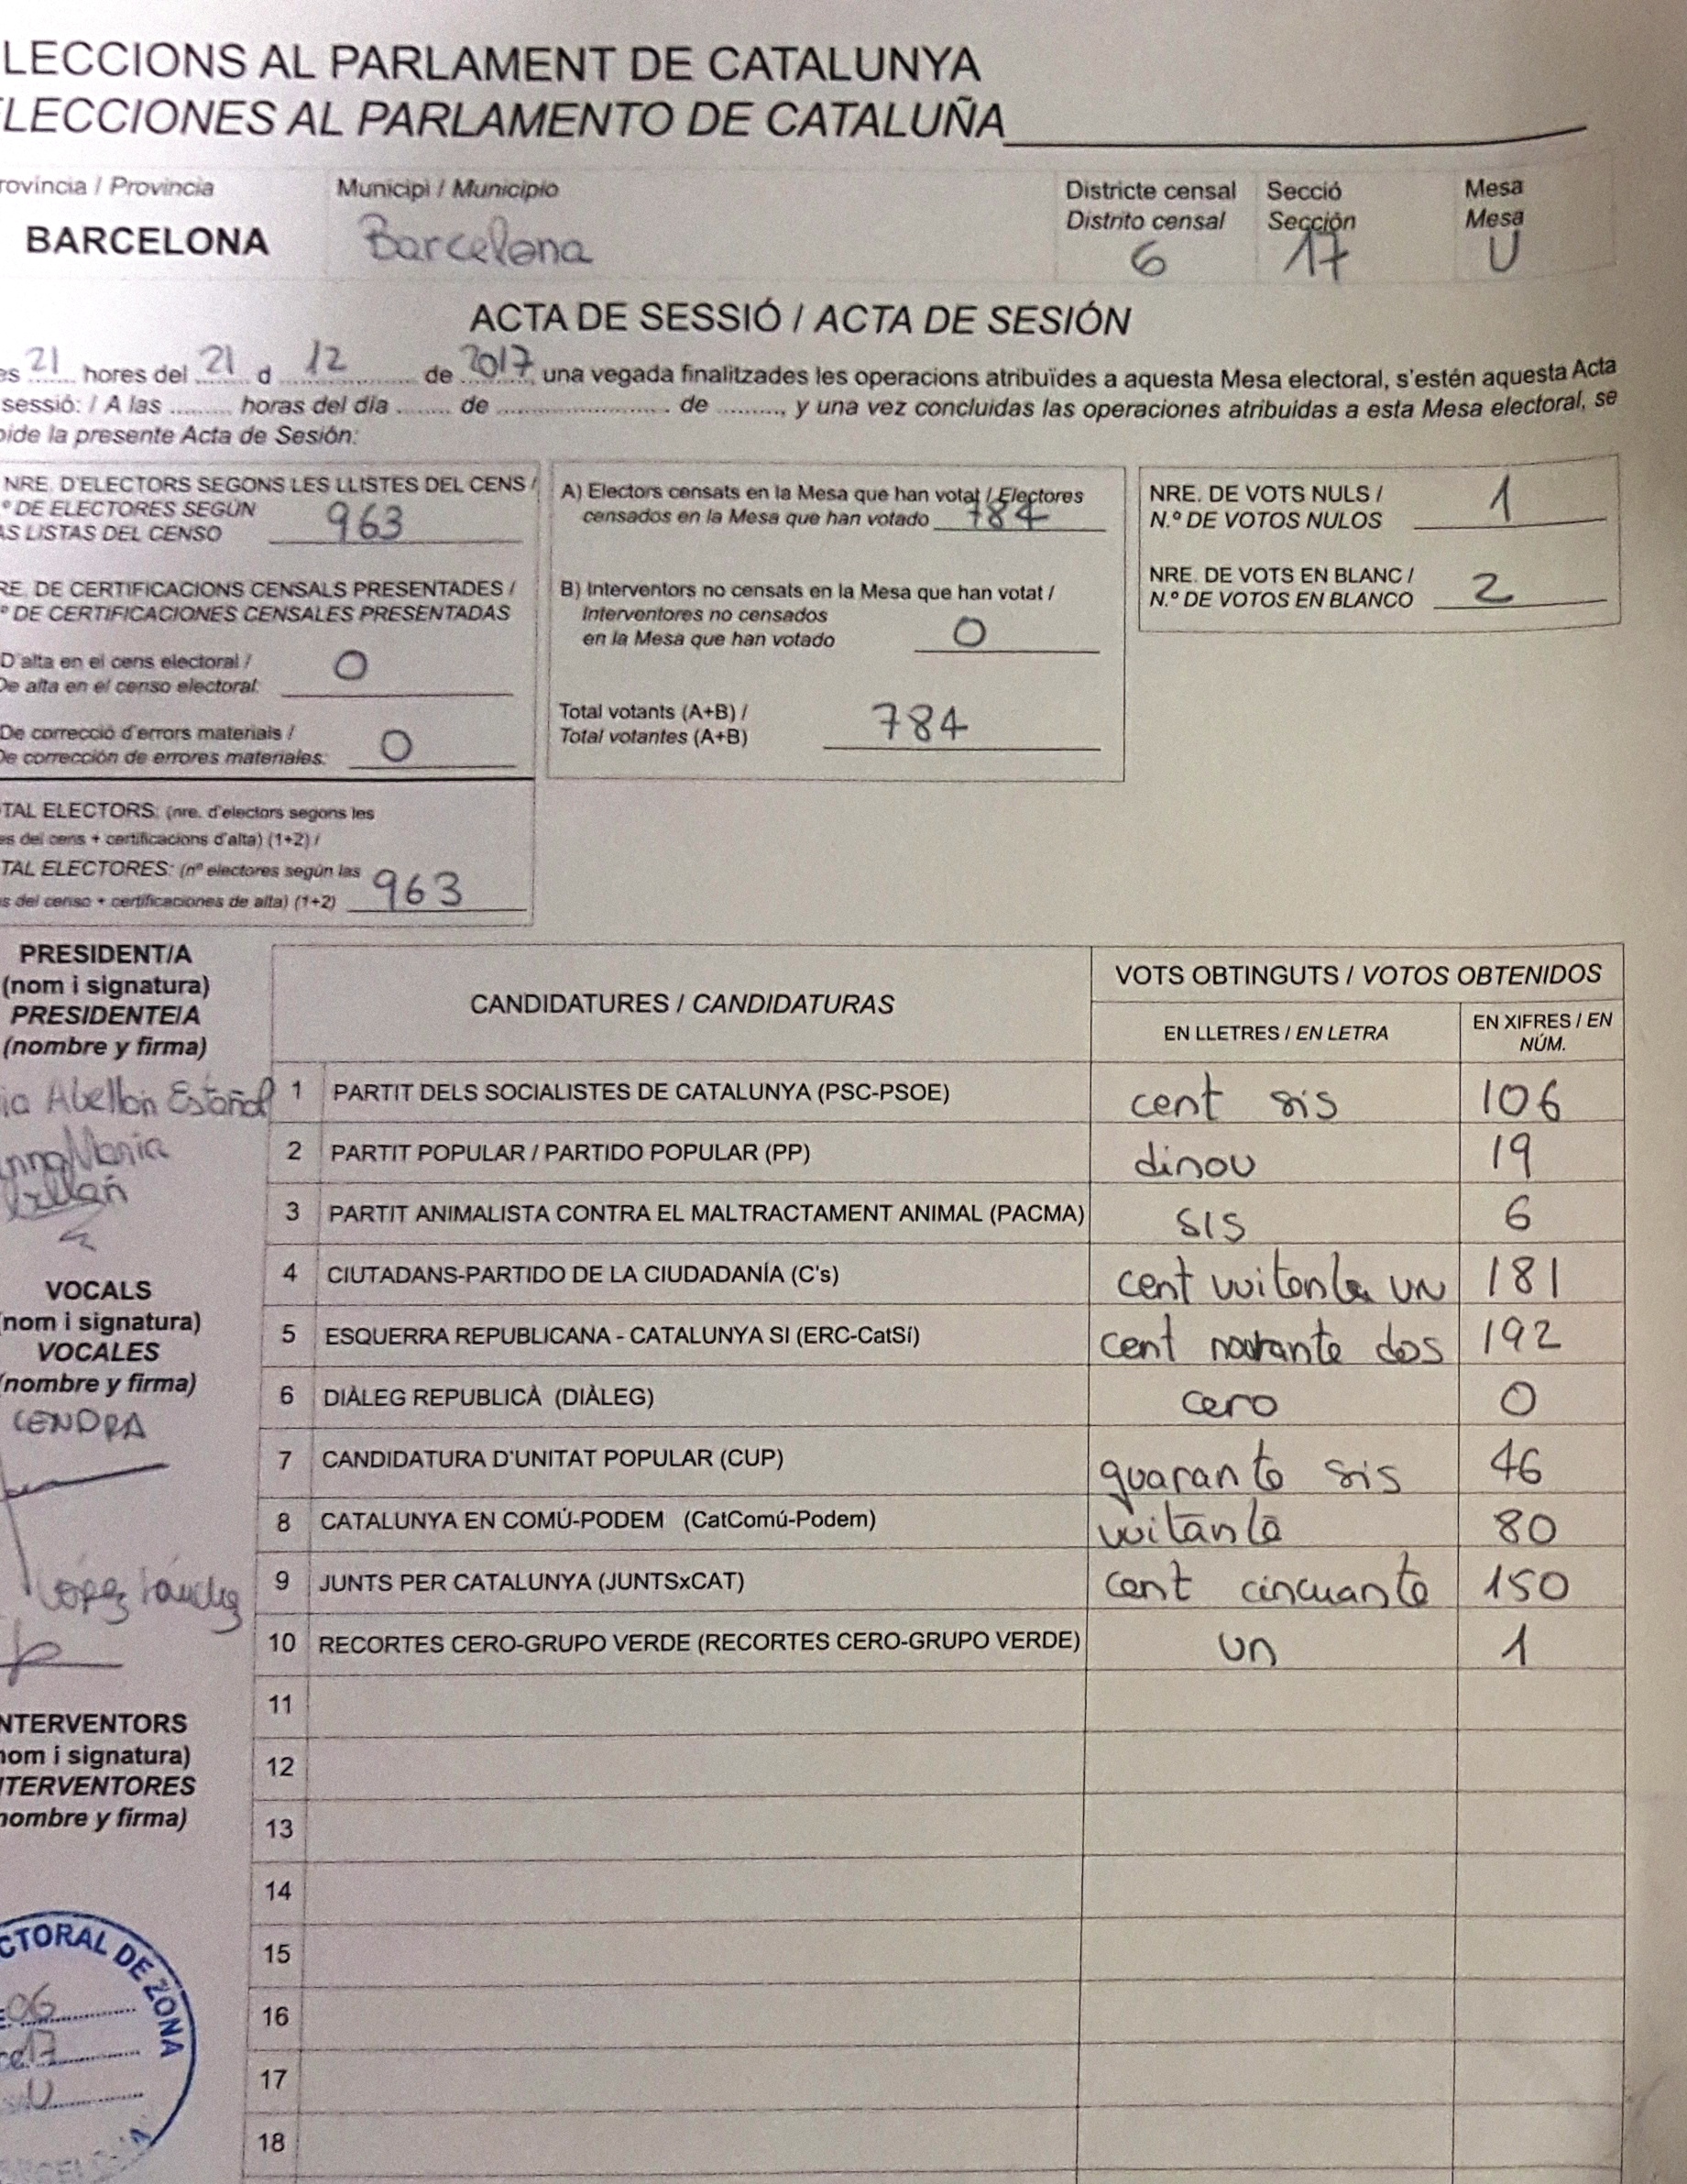 LECCIONS AL PARLAMENT DE CATALUNYA
LECCIONES AL PARLAMENTO DE CATALUÑA
rovíncia / Provincia
Municipi / Municipio
Districte censal
Distrito censal
Secció
Sección
Mesa
Mesa
BARCELONA
Barcelona
6
17
U
ACTA DE SESSIÓ / ACTA DE SESIÓN
es 21 hores del 21 d 12 de 2017, una vegada finalitzades les operacions atribuïdes a aquesta Mesa electoral, s'estén aquesta Acta
sessió: / A las ........ horas del día ........ de ........................ de .........., y una vez concluidas las operaciones atribuidas a esta Mesa electoral, se
pide la presente Acta de Sesión:
NRE. D'ELECTORS SEGONS LES LLISTES DEL CENS /
º DE ELECTORES SEGÚN
AS LISTAS DEL CENSO 963
RE. DE CERTIFICACIONS CENSALS PRESENTADES /
º DE CERTIFICACIONES CENSALES PRESENTADAS
D'alta en el cens electoral /
De alta en el censo electoral: 0
De correcció d'errors materials /
De corrección de errores materiales: 0
TAL ELECTORS: (nre. d'electors segons les
es del cens + certificacions d'alta) (1+2) /
TAL ELECTORES: (nº electores según las
s del censo + certificaciones de alta) (1+2) 963
A) Electors censats en la Mesa que han votat / Electores
censados en la Mesa que han votado 784
B) Interventors no censats en la Mesa que han votat /
Interventores no censados
en la Mesa que han votado 0
Total votants (A+B) /
Total votantes (A+B) 784
NRE. DE VOTS NULS /
N.º DE VOTOS NULOS 1
NRE. DE VOTS EN BLANC /
N.º DE VOTOS EN BLANCO 2
PRESIDENT/A
(nom i signatura)
PRESIDENTE/A
(nombre y firma)
ia Abellan Estañol
VOCALS
(nom i signatura)
VOCALES
(nombre y firma)
CENDRA
López Sánchez
NTERVENTORS
nom i signatura)
NTERVENTORES
nombre y firma)
CTORAL DE ZONA
06
17
U
CANDIDATURES / CANDIDATURAS
VOTS OBTINGUTS / VOTOS OBTENIDOS
EN LLETRES / EN LETRA
EN XIFRES / EN
NÚM.
1 PARTIT DELS SOCIALISTES DE CATALUNYA (PSC-PSOE) cent sis 106
2 PARTIT POPULAR / PARTIDO POPULAR (PP) dinou 19
3 PARTIT ANIMALISTA CONTRA EL MALTRACTAMENT ANIMAL (PACMA) sis 6
4 CIUTADANS-PARTIDO DE LA CIUDADANÍA (C's) cent vuitanta un 181
5 ESQUERRA REPUBLICANA - CATALUNYA SI (ERC-CatSí) cent norante dos 192
6 DIÀLEG REPUBLICÀ (DIÀLEG) cero 0
7 CANDIDATURA D'UNITAT POPULAR (CUP) quaranta sis 46
8 CATALUNYA EN COMÚ-PODEM (CatComú-Podem) vuitanta 80
9 JUNTS PER CATALUNYA (JUNTSxCAT) cent cincuanta 150
10 RECORTES CERO-GRUPO VERDE (RECORTES CERO-GRUPO VERDE) un 1
11
12
13
14
15
16
17
18